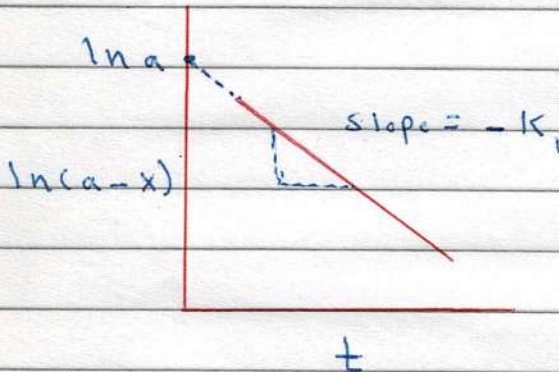 ln a
slope = - K₁
ln(a-x)
t